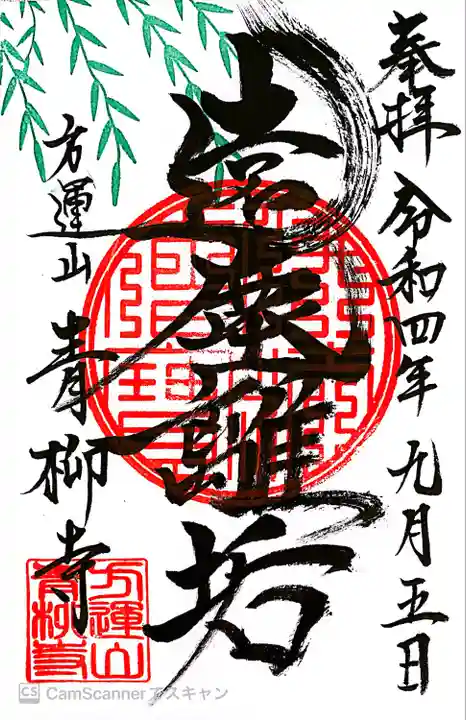 奉拝 令和四年 九月五日
遠塵離垢
方運山 青柳寺
方運山
青柳寺
CS CamScannerでスキャン